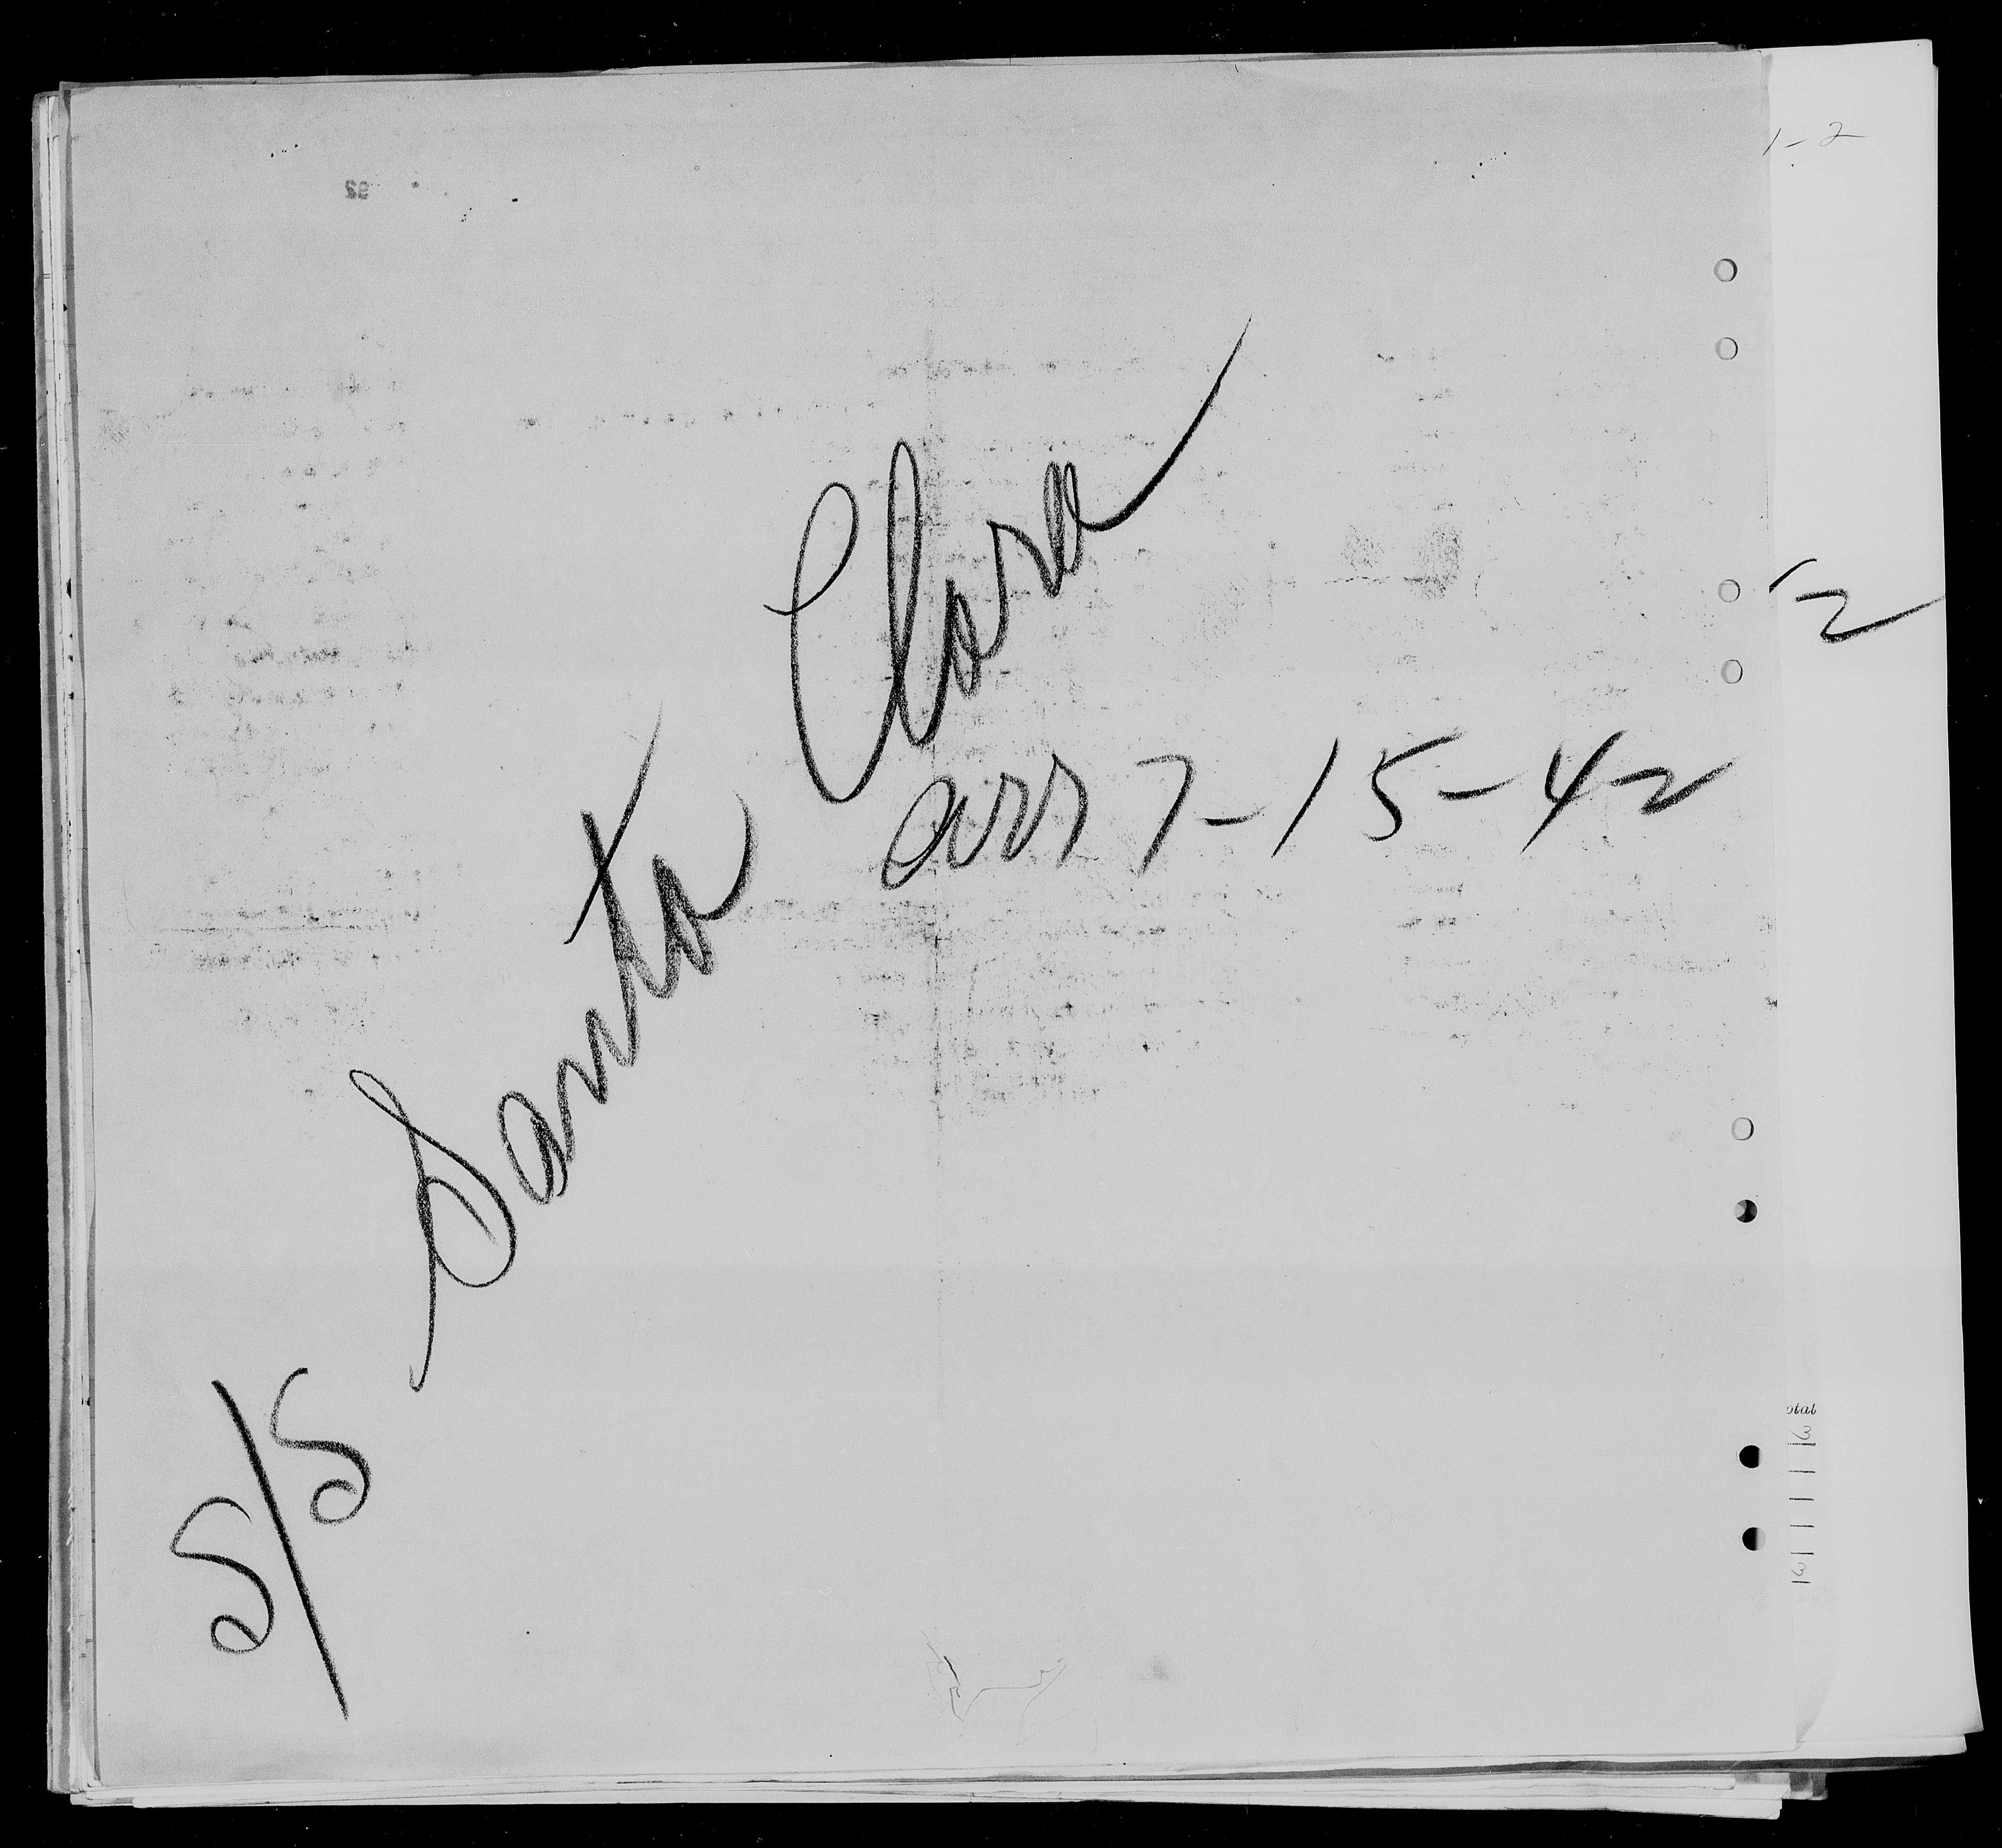 1-2
S/S Santa Clara
arr 7-15-42
-2
otal
3
3